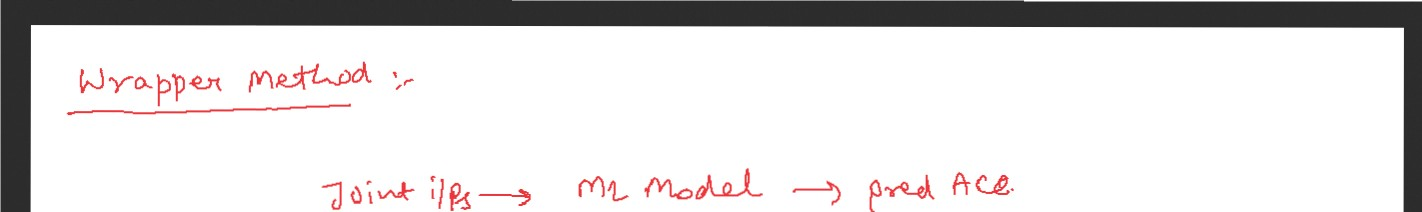 Wrapper Method :-
Joint i/Ps → ML Model → pred Acc.